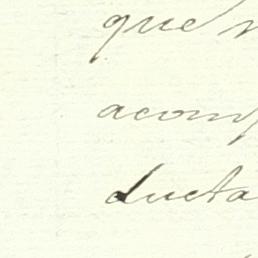 que
acom
ducta